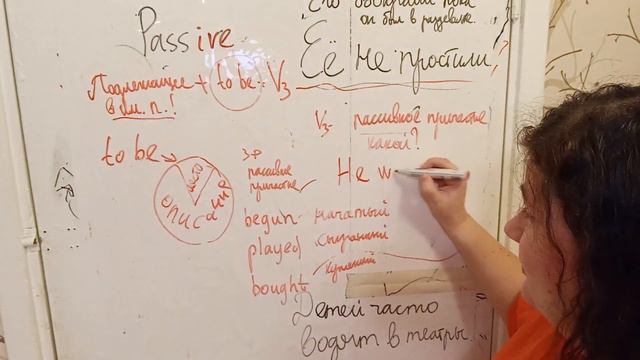 Passive
Его обокрали пока
он был в раздевалке.
Её не простили!
Подлежащее + to be + V3
в им. п.!
V3 - пассивное причастие
какой?
to be
место
описание
3 ф
пассивное
причастие
He w
begun - начатый
played сыгранный
bought купленный
Детей часто
водят в театры.